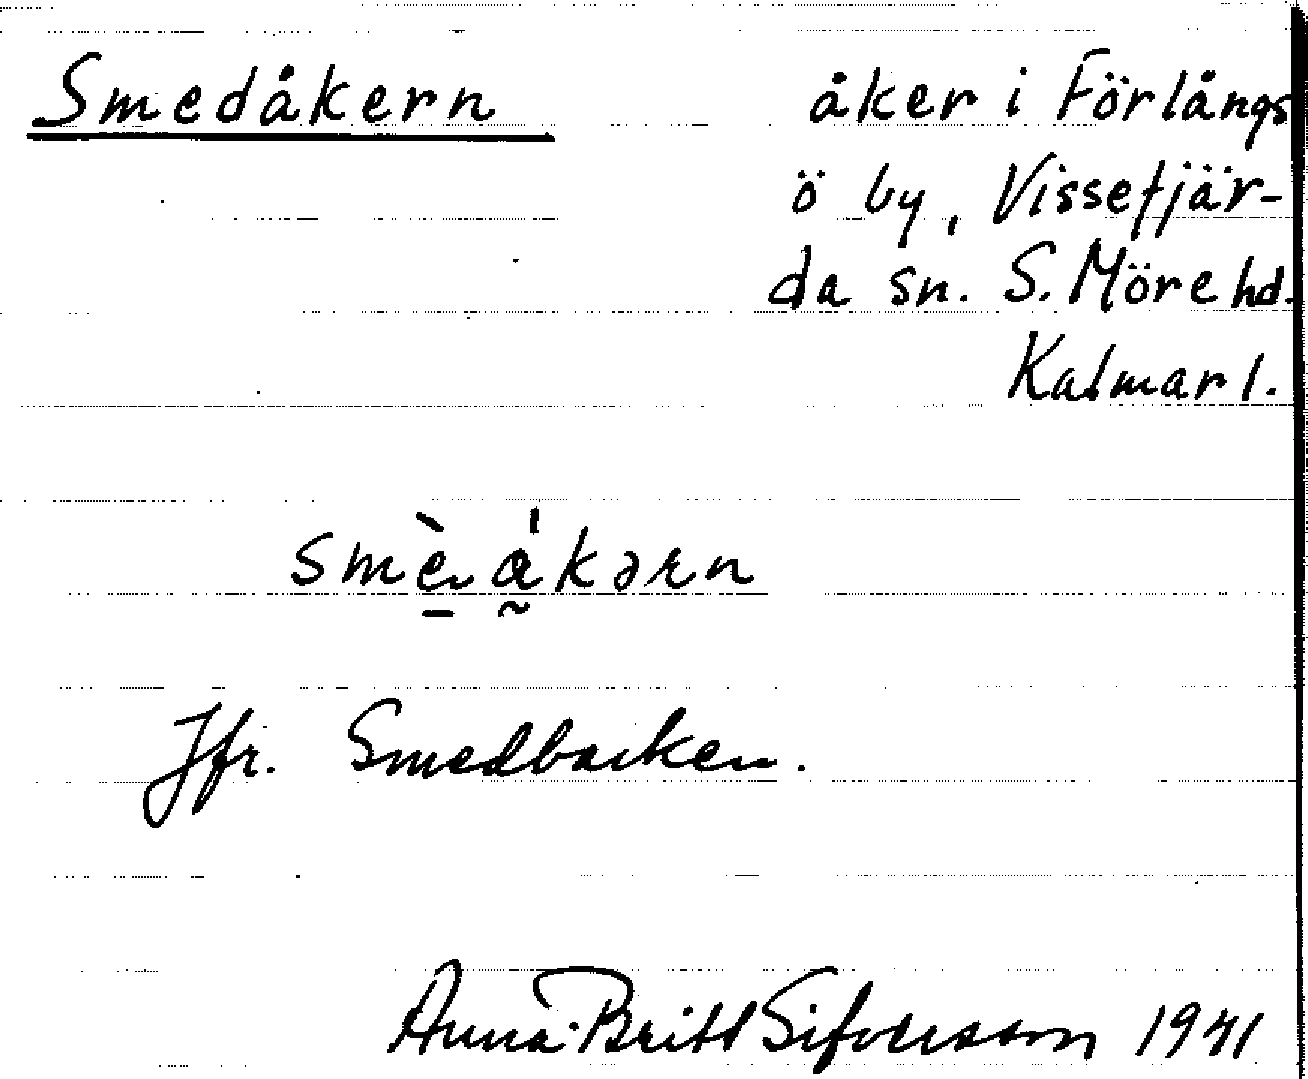 Smedåkern åker i Förlångs
ö by, Vissefjär-
da sn. S. Möre hd.
Kalmar l.
smèa̰̍kərn
Jfr. Smedbacken.
Anna-Britt Sifversson 1941